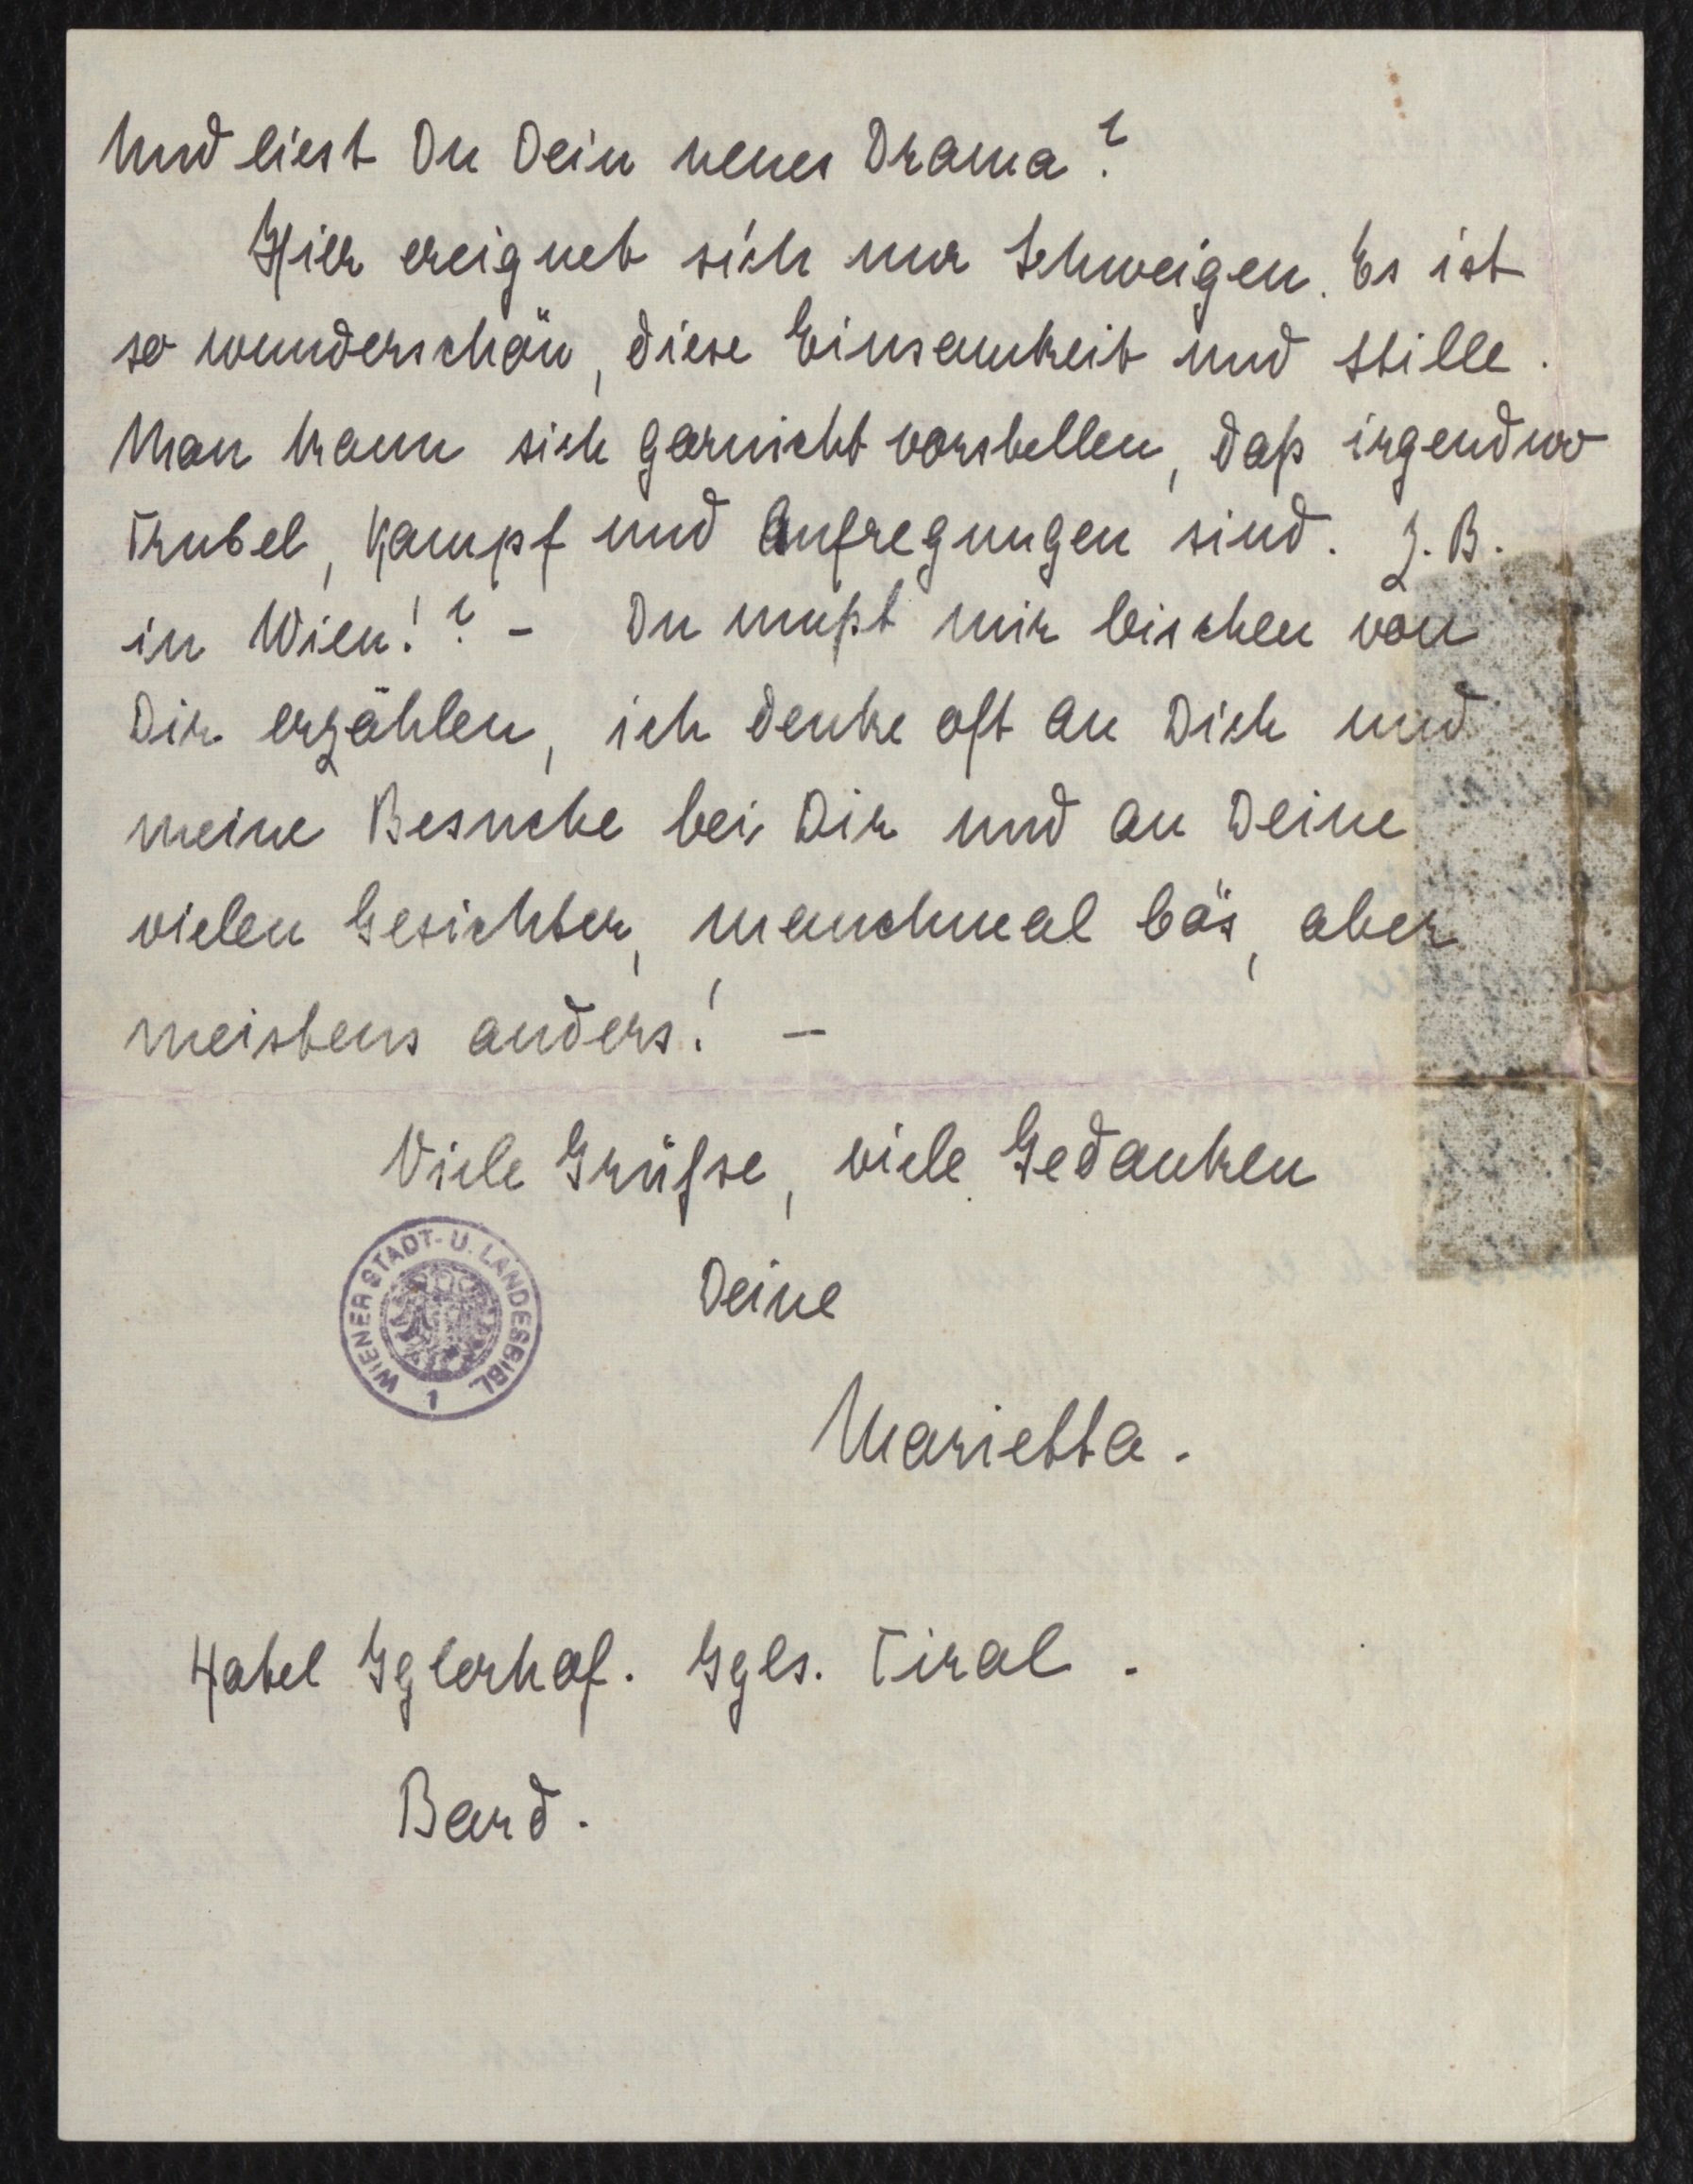 Und liest Du Dein neues Drama?
Hier ereignet sich nur Schweigen. Es ist
so wunderschön, diese Einsamkeit und Stille.
Man kann sich garnicht vorstellen, daß irgendwo
Trubel, Kampf und Aufregungen sind. Z. B.
in Wien!? – Du mußt mir bischen von
Dir erzählen, ich denke oft an Dich und
meine Besuche bei Dir und an Deine
vielen Gesichter, manchmal bös, aber
meistens anders! –
Viele Grüsse, viele Gedanken
Deine
Marietta.
WIENER STADT- U. LANDESBIBL.
1
Hotel Iglerhof. Igls. Tirol.
Bard.